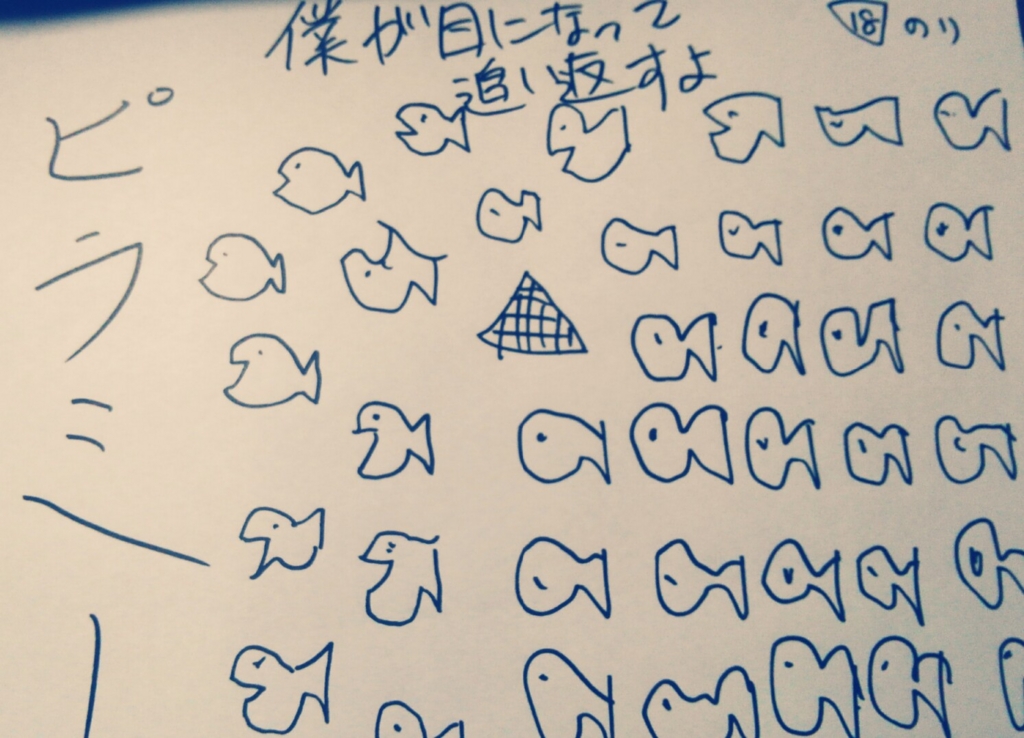 僕が目になって
追い返すよ
18のり
ピラミー